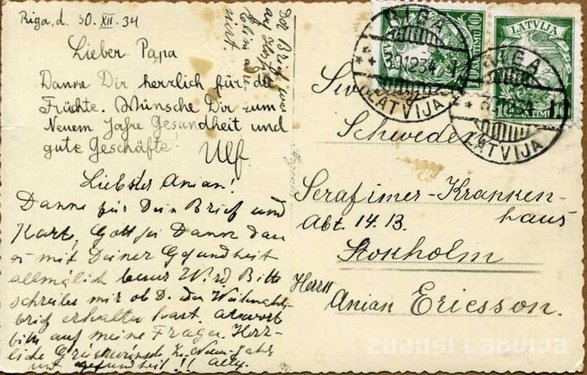 Riga, d. 30. XII. 34
Lieber Papa
Danne Dir herrlich für die
Früchte. Wünsche Dir zum
Neuem Jahre Gesundheit und
gute Geschäfte!
Ulf.
Liebster Anian!
Danne für Dein Brief und
Kart, Gott sei Danne dan
mit Deiner Gesundheit
allmälich besser Wird Bitte
schreibe mir ob D. den Weihnachts-
brief erhalten hast, antwort
bitt auf meine Fragen. Herz-
liche
Der Brief
RIGA
30.12.34
LATVIJA
LATVIJA
10
SANTIMI
RIGA
30.12.34
LATVIJA
Schweden
Serafimer-Kranken-
haus
Abt. 14. B.
Stokholm
Herrn
Anian Ericsson.
ZUDUSI LATVIJA